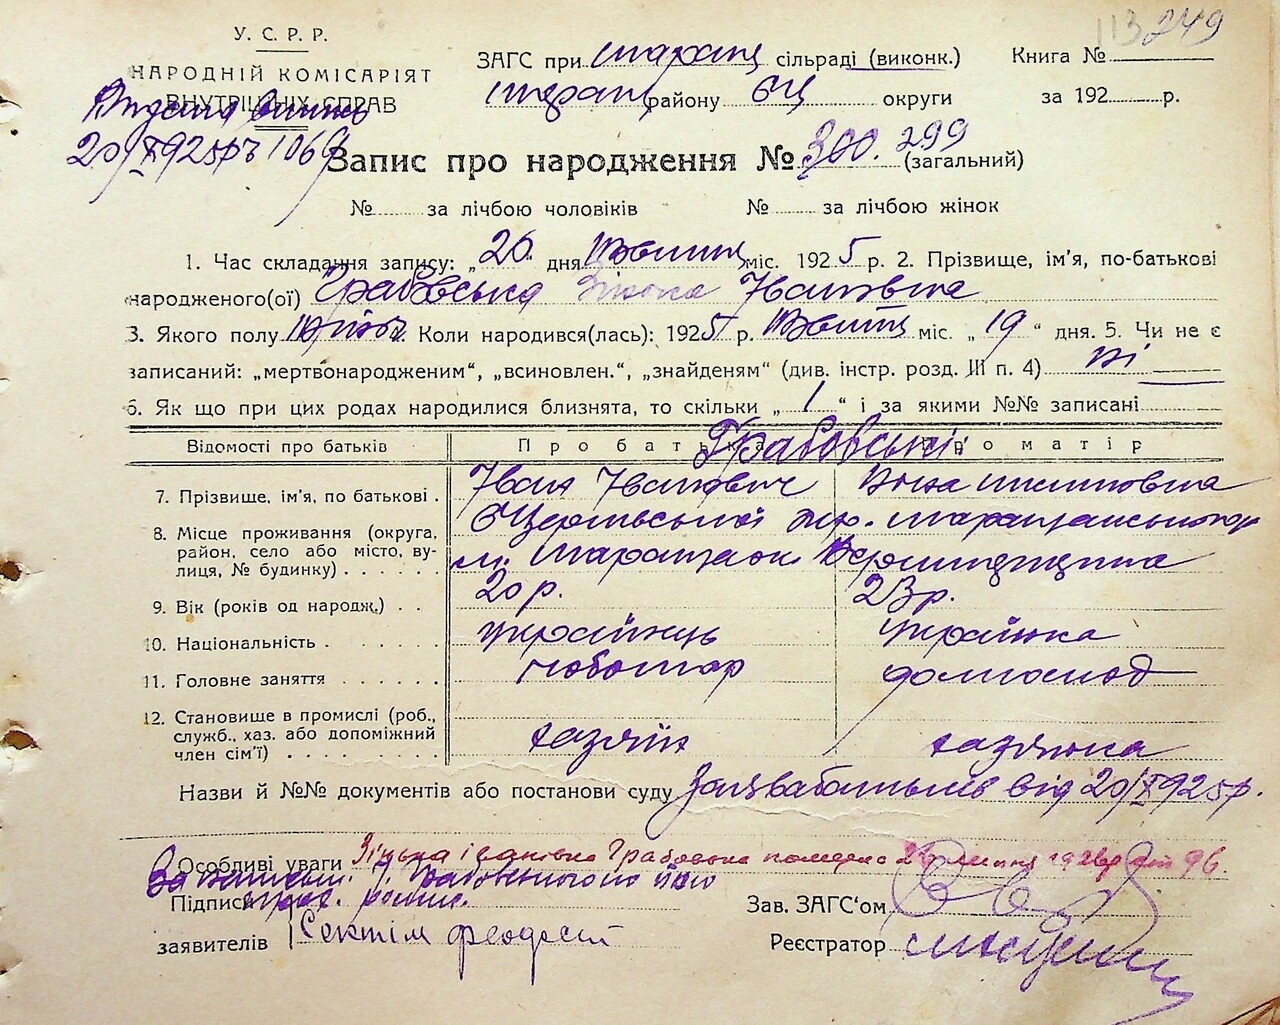 113 249
У. С. Р. Р.
НАРОДНІЙ КОМІСАРІЯТ
ВНУТРІШНІХ СПРАВ
ЗАГС при Таращ сільраді (виконк.)
Таращ району БЦ округи
Книга №
за 192 р.
20/X 925 р № 1069
Запис про народження № 300. 299 (загальний)
№ за лічбою чоловіків № за лічбою жінок
1. Час складання запису: „20" дня Жовтня міс. 1925 р. 2. Прізвище, ім'я, по-батькові
народженого(ої) Грабовська Зінька Іванівна
3. Якого полу Жіноч. Коли народився(лась): 1925 р. Жовтня міс. „19" дня. 5. Чи не є
записаний: „мертвонародженим", „всиновлен.", „знайденям" (див. інстр. розд. III п. 4) ні
6. Як що при цих родах народилися близнята, то скільки „1" і за якими №№ записані
Відомості про батьків Про батька Про матір
Грабовські
7. Прізвище, ім'я, по батькові . Іван Іванович
8. Місце проживання (округа, БЦерківської окр. Таращанського р
район, село або місто, ву-
лиця, № будинку) . . . . . м. Таращан
9. Вік (років од народж.) . . 20 р. 23 р.
10. Національність . . . . . . українець українка
11. Головне заняття . . . . . . чоботар домгоспод
12. Становище в промислі (роб.,
служб., хаз. або допоміжний
член сім'ї) . . . . . . . . хазяїн хазяйка
Назви й №№ документів або постанови суду від 20/X 925 р.
Особливі уваги Зінька Іванівна Грабовська померла 96.
За Грабовського його
Підписи
заявителів Феодосій
Зав. ЗАГС'ом
Реєстратор